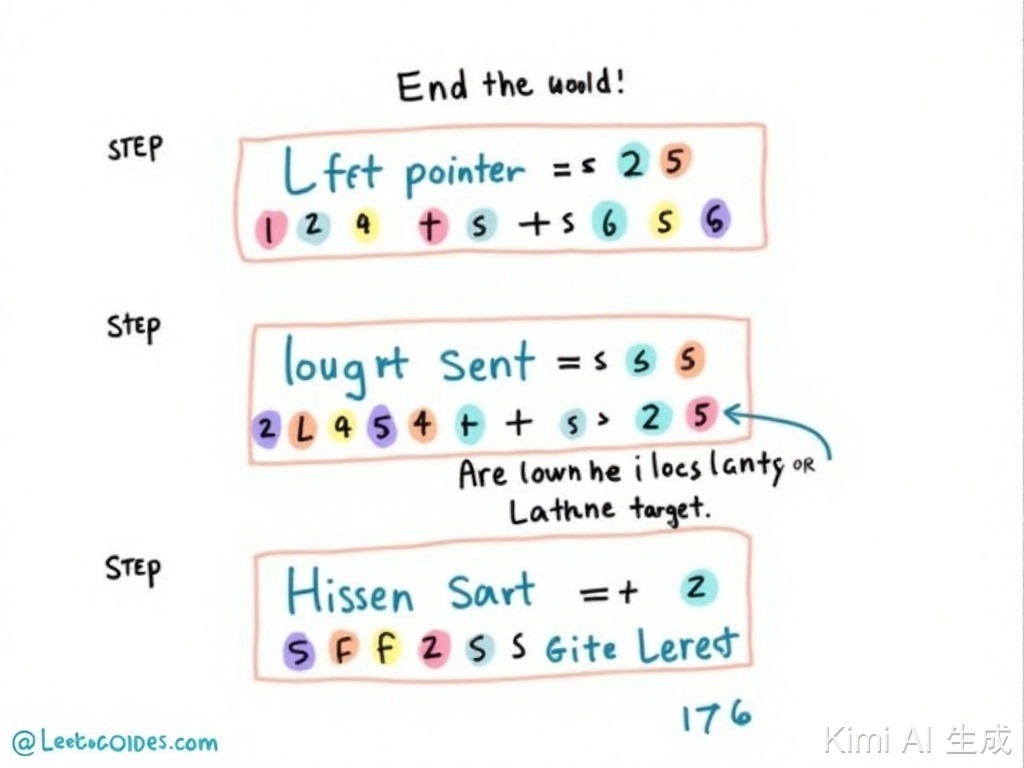 End the woold!
STEP
Lfet pointer = s 2 5
1 2 9 + s + s 6 5 6
STEP
lougrt Sent = s s 5
2 L 9 5 4 + + s > 2 5
Are lownhe i locs lanty OR
Lathne target.
STEP
Hissen Sart = + 2
S F F 2 S S Gite Lerest
176
@LeetocOIDes.com
Kimi AI 生成